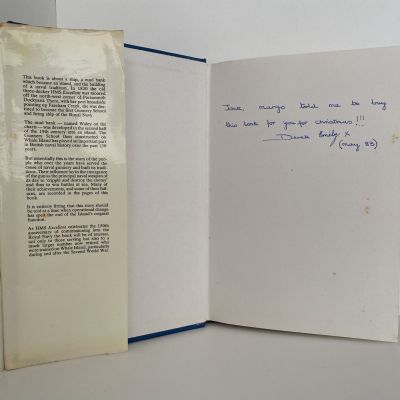 This book is about a ship, a mud bank
which became an island, and the building
of a naval tradition. In 1830 the old
three-decker HMS Excellent was moored
off the north-west corner of Portsmouth
Dockyard. There, with her port broadside
pointing up Fareham Creek, she was des-
tined to become the first Gunnery School
and firing ship of the Royal Navy.
The mud bank — named Waley on the
charts — was developed in the second half
of the 19th century into an island. The
Gunnery School then constructed on
Whale Island has played an important part
in British naval history over the past 150
years.
But essentially this is the story of the peo-
ple who over the years have served the
causes of naval gunnery and built its tradi-
tions. Their influence lay in the emergence
of the gun as the principal naval weapon of
its day to 'cripple and destroy the enemy'
and thus to win battles at sea. Many of
their achievements, and some of their fail-
ures, are recorded in the pages of this
book.
It is entirely fitting that this story should
be told at a time when operational change
has spelt the end of the Island's original
function.
As HMS Excellent celebrates the 150th
anniversary of commissioning into the
Royal Navy the book will be of interest,
not only to those serving but also to a
much larger number now retired who
were trained on Whale Island, particularly
during and after the Second World War.
Jack, margo told me to buy
this book for you for christmas !!!
Emily x
(may 83)